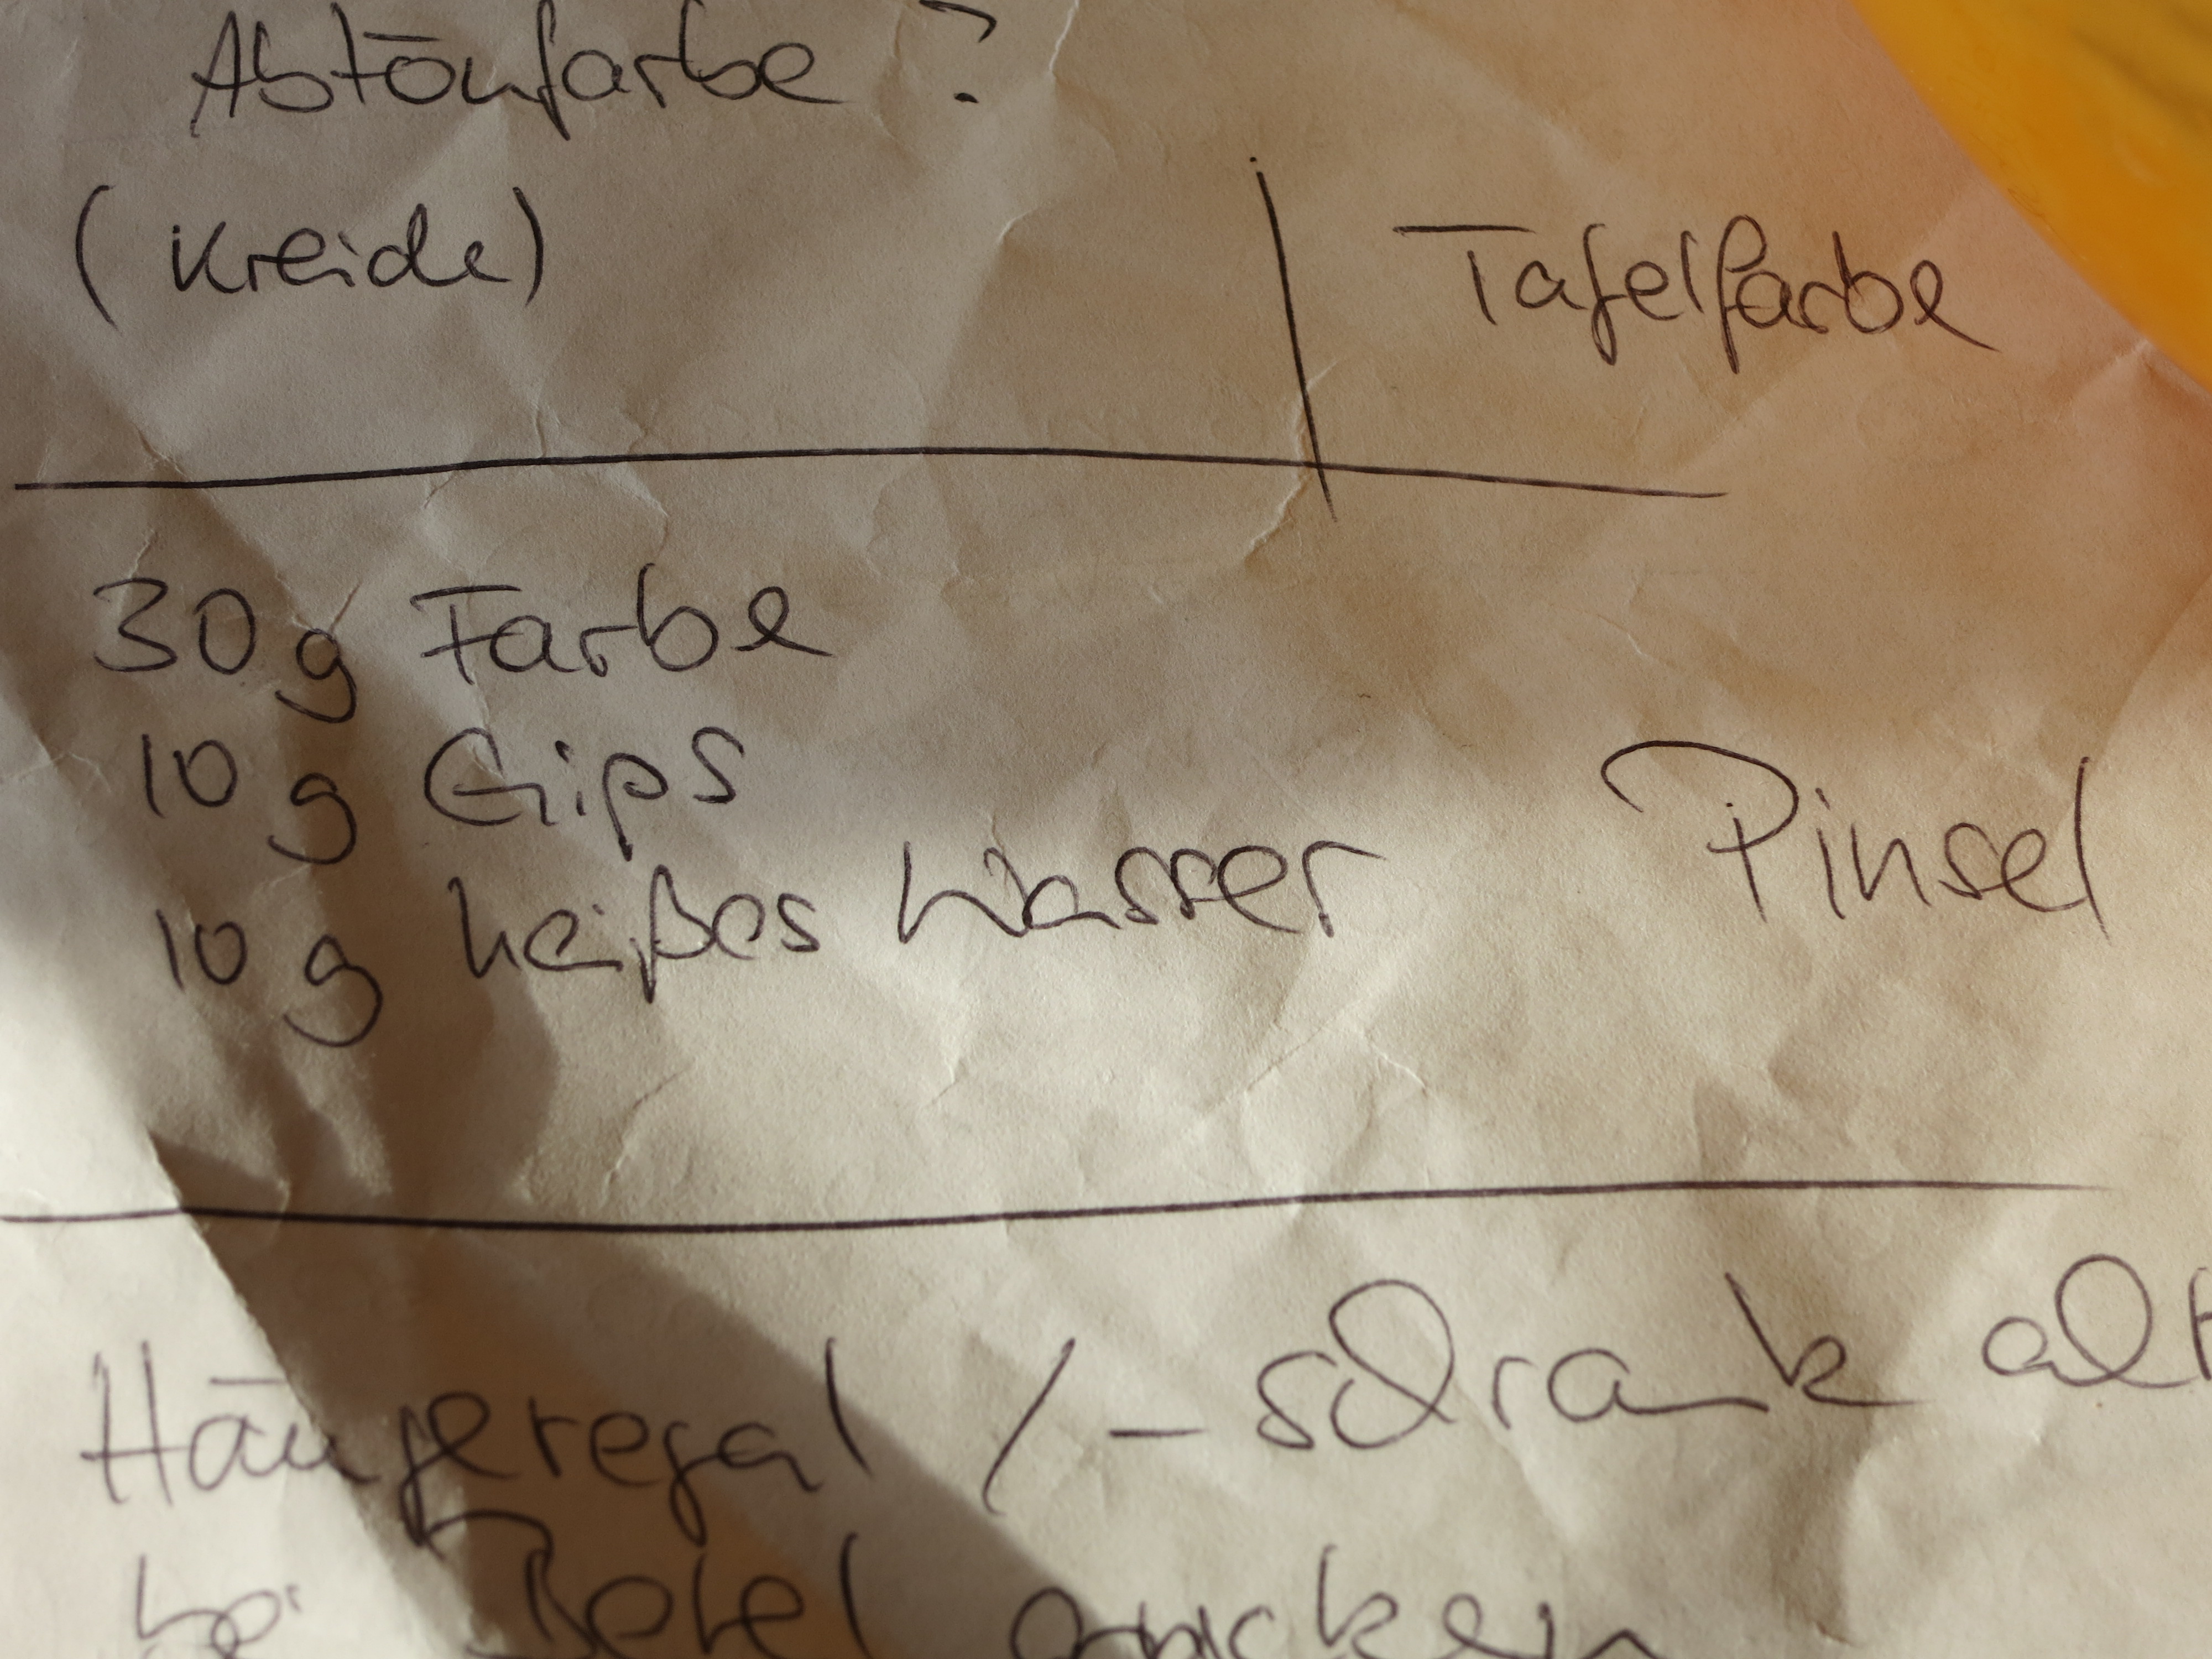 Abtönfarbe ?
(Kreide)
Tafelfarbe
30 g Farbe
10 g Gips
10 g heißes Wasser
Pinsel
Hängeregal / - schrank alt
bei Betel gucken